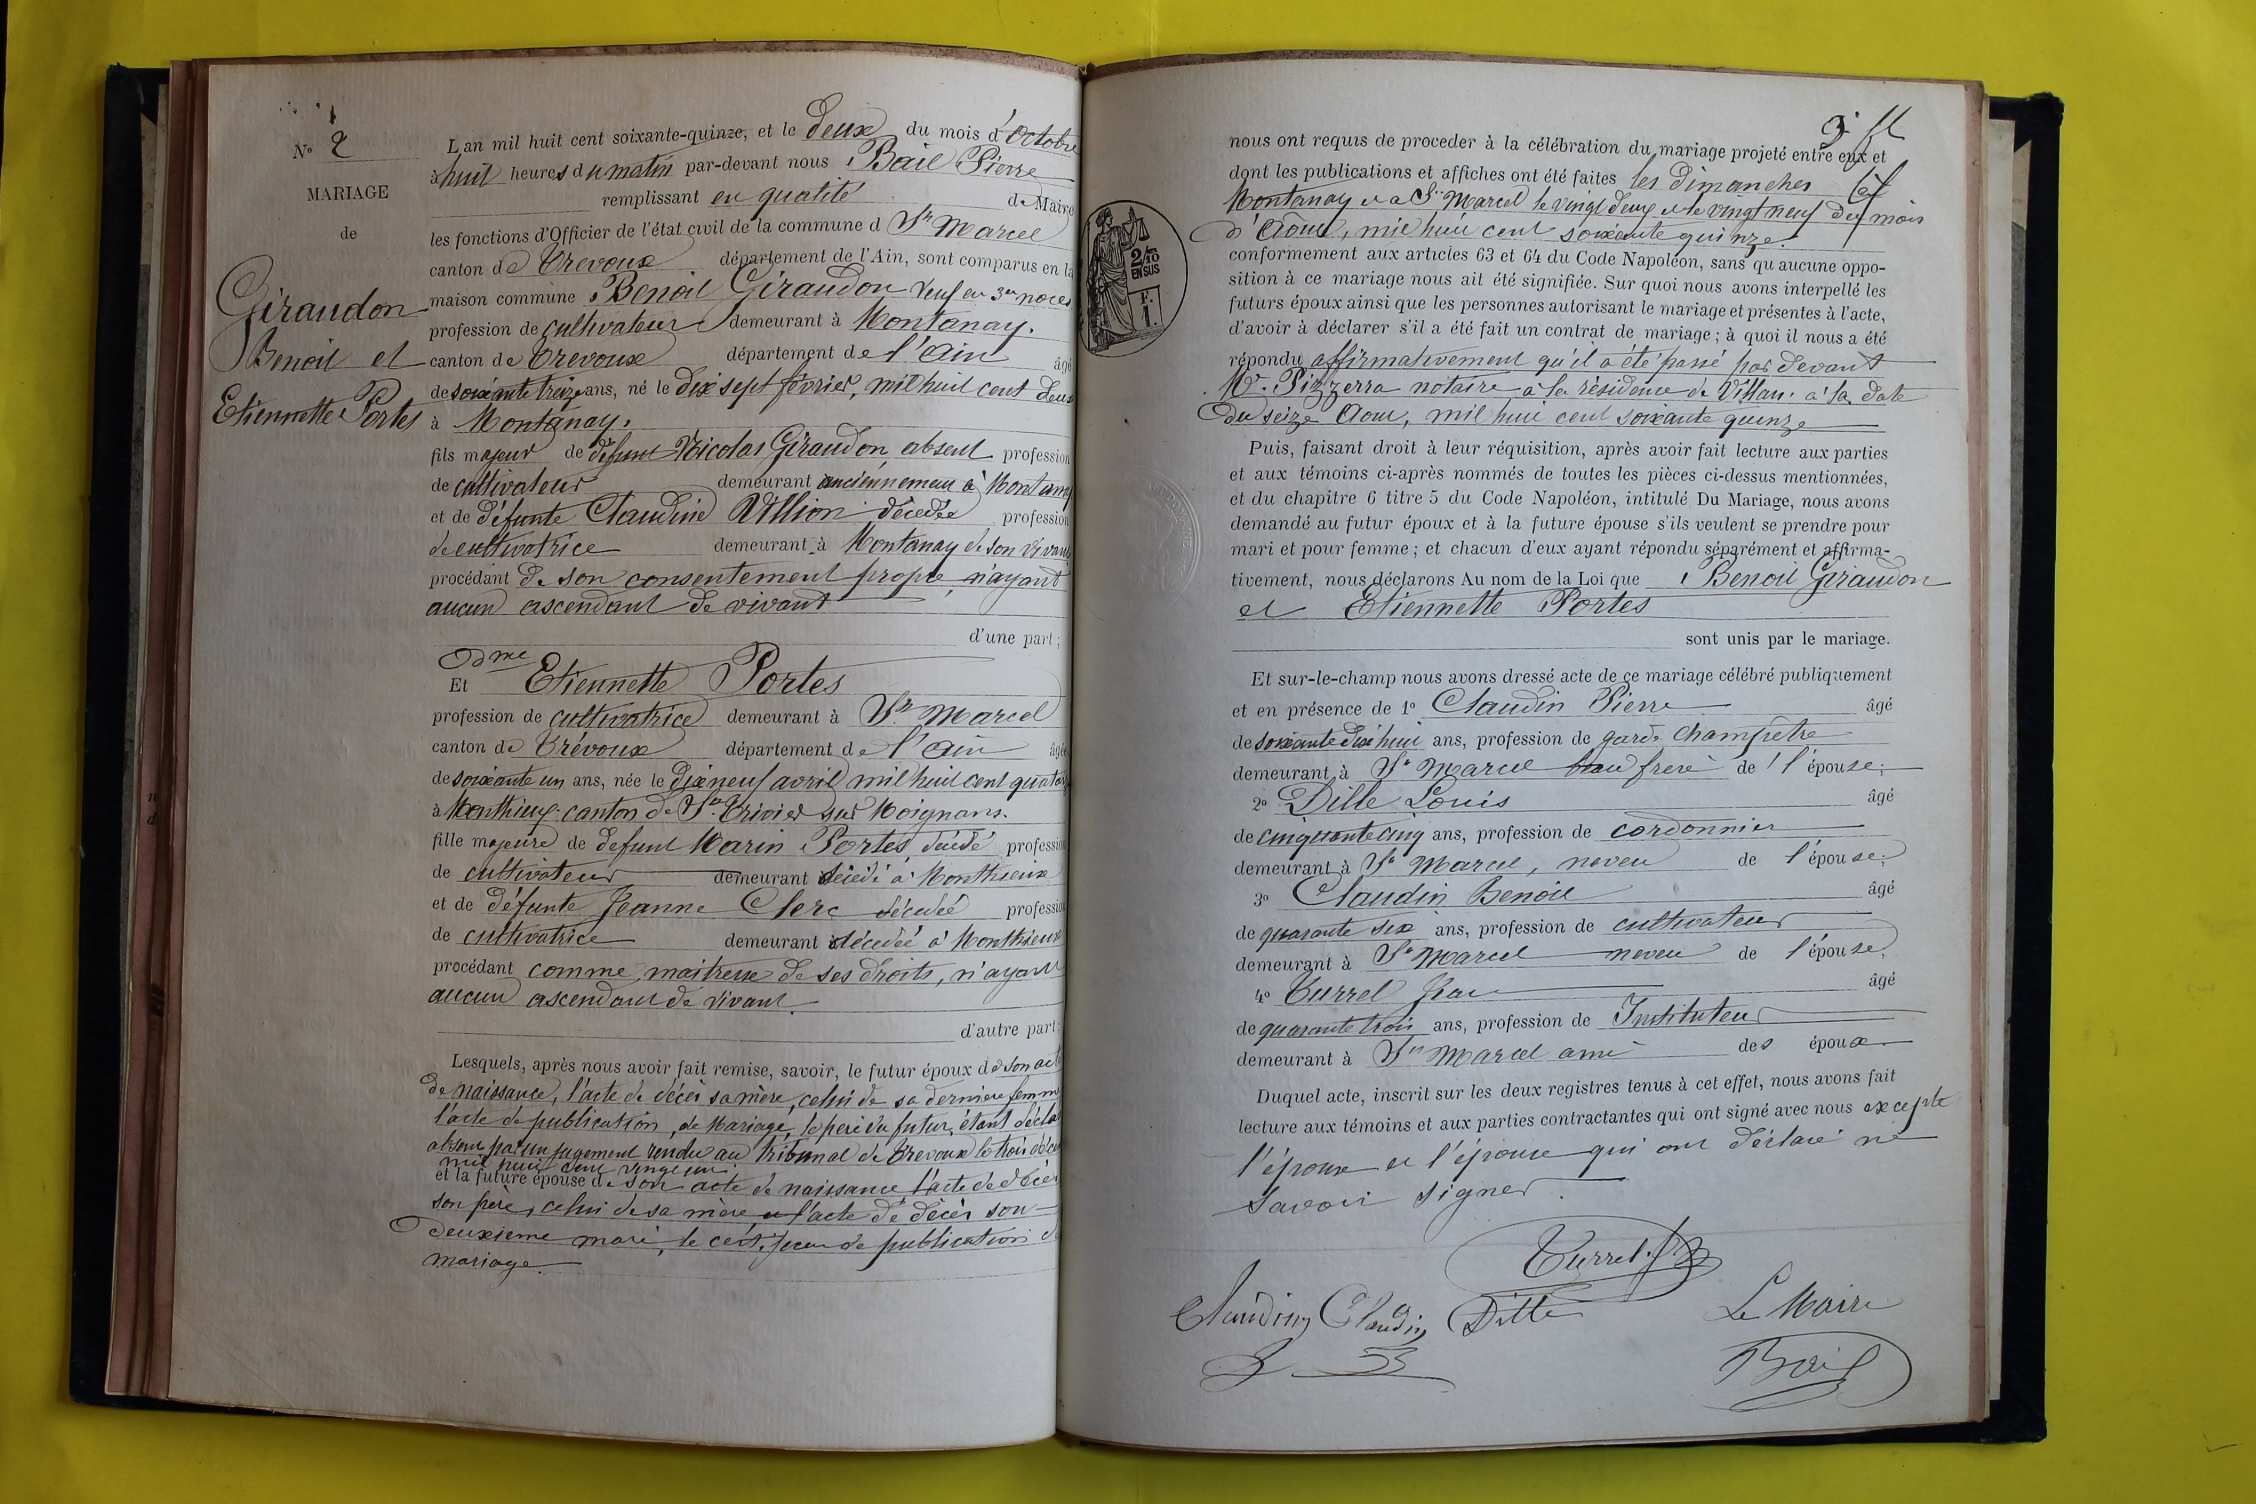 N° 2
MARIAGE
de
Giraudon
Benoit et
Etiennette Portes
L'an mil huit cent soixante-quinze, et le deux du mois d'octobre
à huit heures du matin par-devant nous Bail Pierre
remplissant en qualité de Maire
les fonctions d'Officier de l'état civil de la commune d St Marcel
canton de Trevoux département de l'Ain, sont comparus en la
maison commune Benoit Giraudon veuf en 3es noces
profession de cultivateur demeurant à Montanay.
canton de Trevoux département de l'Ain âgé
de soixante treize ans, né le dix sept février, mil huit cent deux
à Montanay.
fils majeur de défunt Nicolas Giraudon, absent profession
de cultivateur demeurant anciennement à Montanay
et de défunte Claudine Villion décedée profession
de cultivatrice demeurant à Montanay de son vivant
procédant de son consentement propre, n'ayant
aucun ascendant de vivant
d'une part;
Dme
Et Etiennette Portes
profession de cultivatrice demeurant à St Marcel
canton de Trévoux département de l'Ain âgée
de soixante un ans, née le dix neuf avril mil huit cent quatorze
à Monthieux canton de St Trivier sur Moignans.
fille majeure de defunt Marin Portes décédé profession
de cultivateur demeurant décédé à Monthieux
et de défunte Jeanne Clerc décedée profession
de cultivatrice demeurant décedée à Monthieux
procédant comme maitresse de ses droits, n'ayant
aucun ascendant de vivant.
d'autre part;
Lesquels, après nous avoir fait remise, savoir, le futur époux de son acte
de naissance, l'acte de décès sa mère, celui de sa dernière femme
l'acte de publication, de Mariage, le père du futur, étant déclaré
absent par un jugement rendu au tribunal de Trevoux le trois
mil huit cent vingt un
et la future épouse de son acte de naissance l'acte de décès
son père, celui de sa mère et l'acte de décès son
deuxième mari, le certificat de publication de
mariage.
nous ont requis de proceder à la célébration du mariage projeté entre eux et
dont les publications et affiches ont été faites les dimanches à
Montanay et a St Marcel le vingt deux et le vingt neuf du mois
d'Août, mil huit cent soixante quinze.
2/10
EN SUS
F.
1.
conformement aux articles 63 et 64 du Code Napoléon, sans qu'aucune oppo-
sition à ce mariage nous ait été signifiée. Sur quoi nous avons interpellé les
futurs époux ainsi que les personnes autorisant le mariage et présentes à l'acte,
d'avoir à déclarer s'il a été fait un contrat de mariage; à quoi il nous a été
répondu affirmativement qu'il a été passé par devant
Me Pizzerra notaire à la résidence de Villars à la date
du seize Aout, mil huit cent soixante quinze
Puis, faisant droit à leur réquisition, après avoir fait lecture aux parties
et aux témoins ci-après nommés de toutes les pièces ci-dessus mentionnées,
et du chapitre 6 titre 5 du Code Napoléon, intitulé Du Mariage, nous avons
demandé au futur époux et à la future épouse s'ils veulent se prendre pour
mari et pour femme; et chacun d'eux ayant répondu séparément et affirma-
tivement, nous déclarons Au nom de la Loi que Benoit Giraudon
et Etiennette Portes
sont unis par le mariage.
Et sur-le-champ nous avons dressé acte de ce mariage célébré publiquement
et en présence de 1° Claudin Pierre âgé
de soixante dix huit ans, profession de garde champêtre
demeurant à St Marcel beau frere de l'épouse;
2° Dille Louis âgé
de cinquante cinq ans, profession de cordonnier
demeurant à St Marcel, neveu de l'épouse;
3° Claudin Benoit âgé
de quarante six ans, profession de cultivateur
demeurant à St Marcel neveu de l'épouse;
4° Turrel Jean âgé
de quarante trois ans, profession de Instituteur
demeurant à St Marcel ami des époux
Duquel acte, inscrit sur les deux registres tenus à cet effet, nous avons fait
lecture aux témoins et aux parties contractantes qui ont signé avec nous excepté
l'époux et l'épouse qui ont déclaré ne
savoir signer.
Turrel
Claudin Claudin Dille Le Maire
B Bail